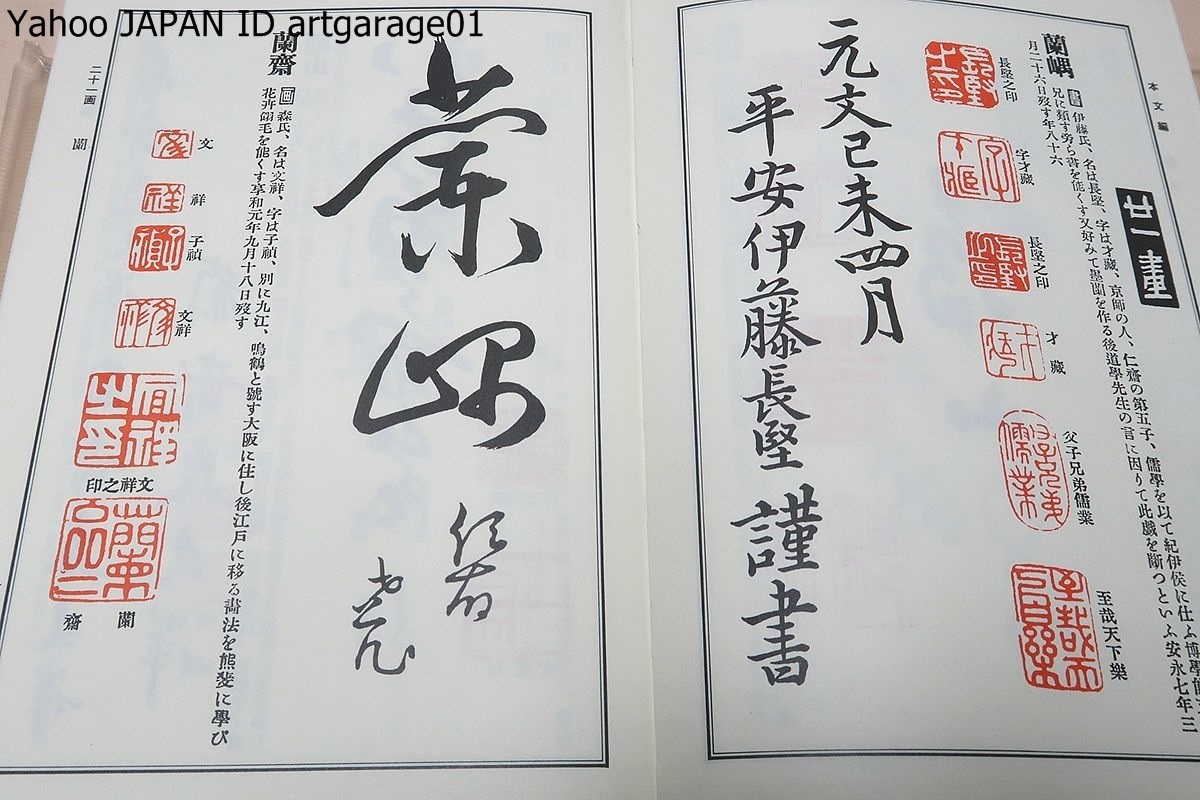 Yahoo JAPAN ID artgarage01
本文編
廿一畫
蘭嵎
書 伊藤氏、名は長堅、字は才藏、京師の人、仁齋の第五子、儒學を以て紀伊侯に仕ふ博學能文
兄に類す旁ら書を能くす又好みて墨蘭を作る後道學先生の言に因りて此戲を斷つといふ安永七年三
月二十六日歿す年八十六
長堅之印
字才藏
長堅之印
才藏
父子兄弟儒業
至哉天下樂
元文己未四月
平安伊藤長堅謹書
蘭嵎
蘭齋
画 森氏、名は文祥、字は子禎、別に九江、鳴鶴と號す大阪に住し後江戸に移る畵法を熊斐に學び
花卉翎毛を能くす享和元年九月十八日歿す
文
祥
子禎
文祥
文祥之印
蘭齋
二十一画
蘭